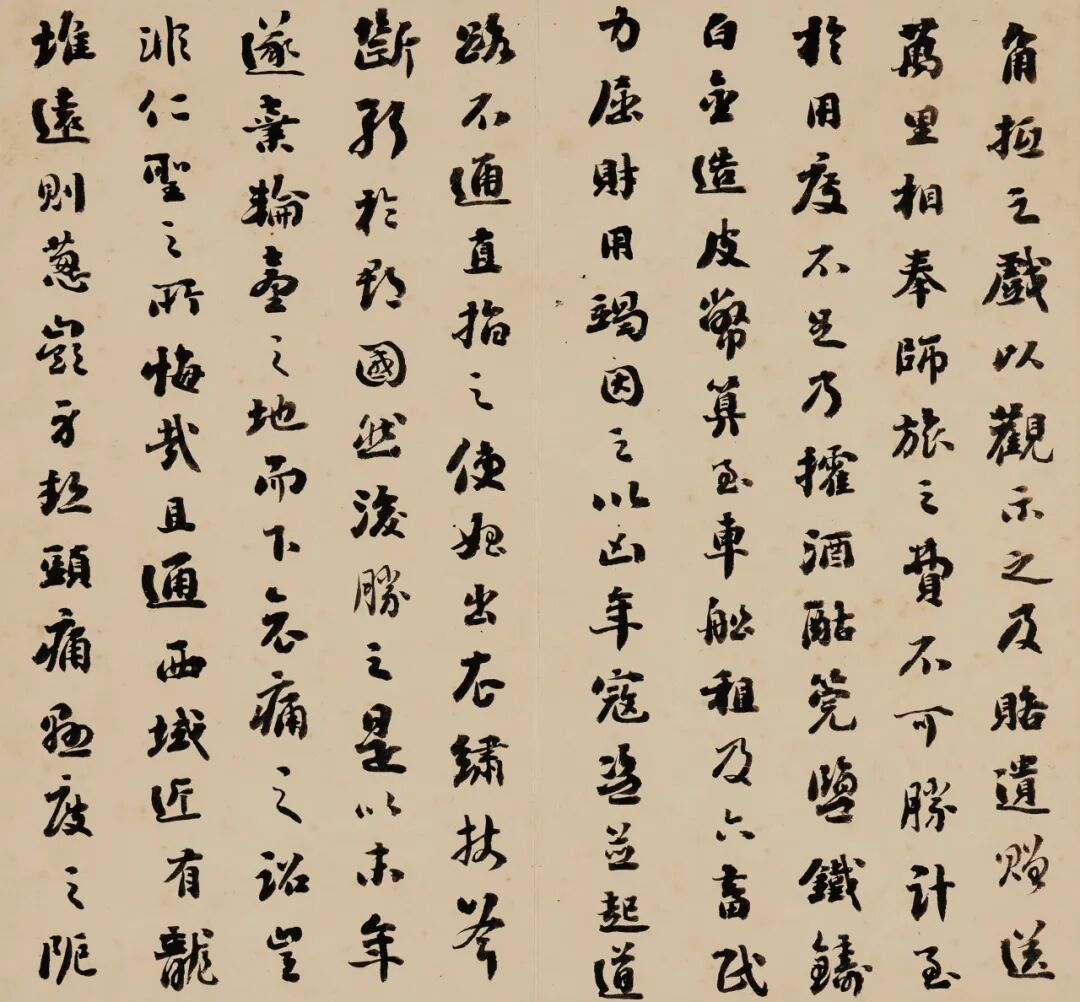 角抵之戲以觀示之及賂遺贈送
萬里相奉師旅之費不可勝計至
於用度不足乃搉酒酤筦鹽鐵鑄
白金造皮幣算至車船租及六畜民
力屈財用竭因之以凶年寇盜並起道
路不通直指之使始出衣繡杖斧
斷斬於郡國然後勝之是以末年
遂棄輪臺之地而下哀痛之詔豈
非仁聖之所悔哉且通西域近有龍
堆遠則蔥嶺身熱頭痛懸度之阨